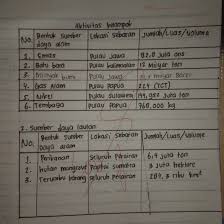 Aktivitas kelompok
No. Bentuk Sumber daya alam Lokasi Sebaran Jumlah/Luas/Volume
1. Emas Pulau Jawa juta ons
2. Batu bara Pulau kalimantan Milyar ton
3. Minyak bumi Pulau Jawa Milyar Barel
4. Gas Alam Pulau Papua (TCF)
5. Nikel Pulau Sulawesi juta ton
6. Tembaga Pulau Papua 968,000 kg
2. Sumber daya lautan
No. Bentuk Sumber daya alam Lokasi Sebaran Jumlah/Luas/Volume
1. Perikanan Seluruh Perairan juta ton
2. hutan mangrove Papua, Sumatra 3 Juta hektare
3. Terumbu karang Seluruh Perairan ribu km²